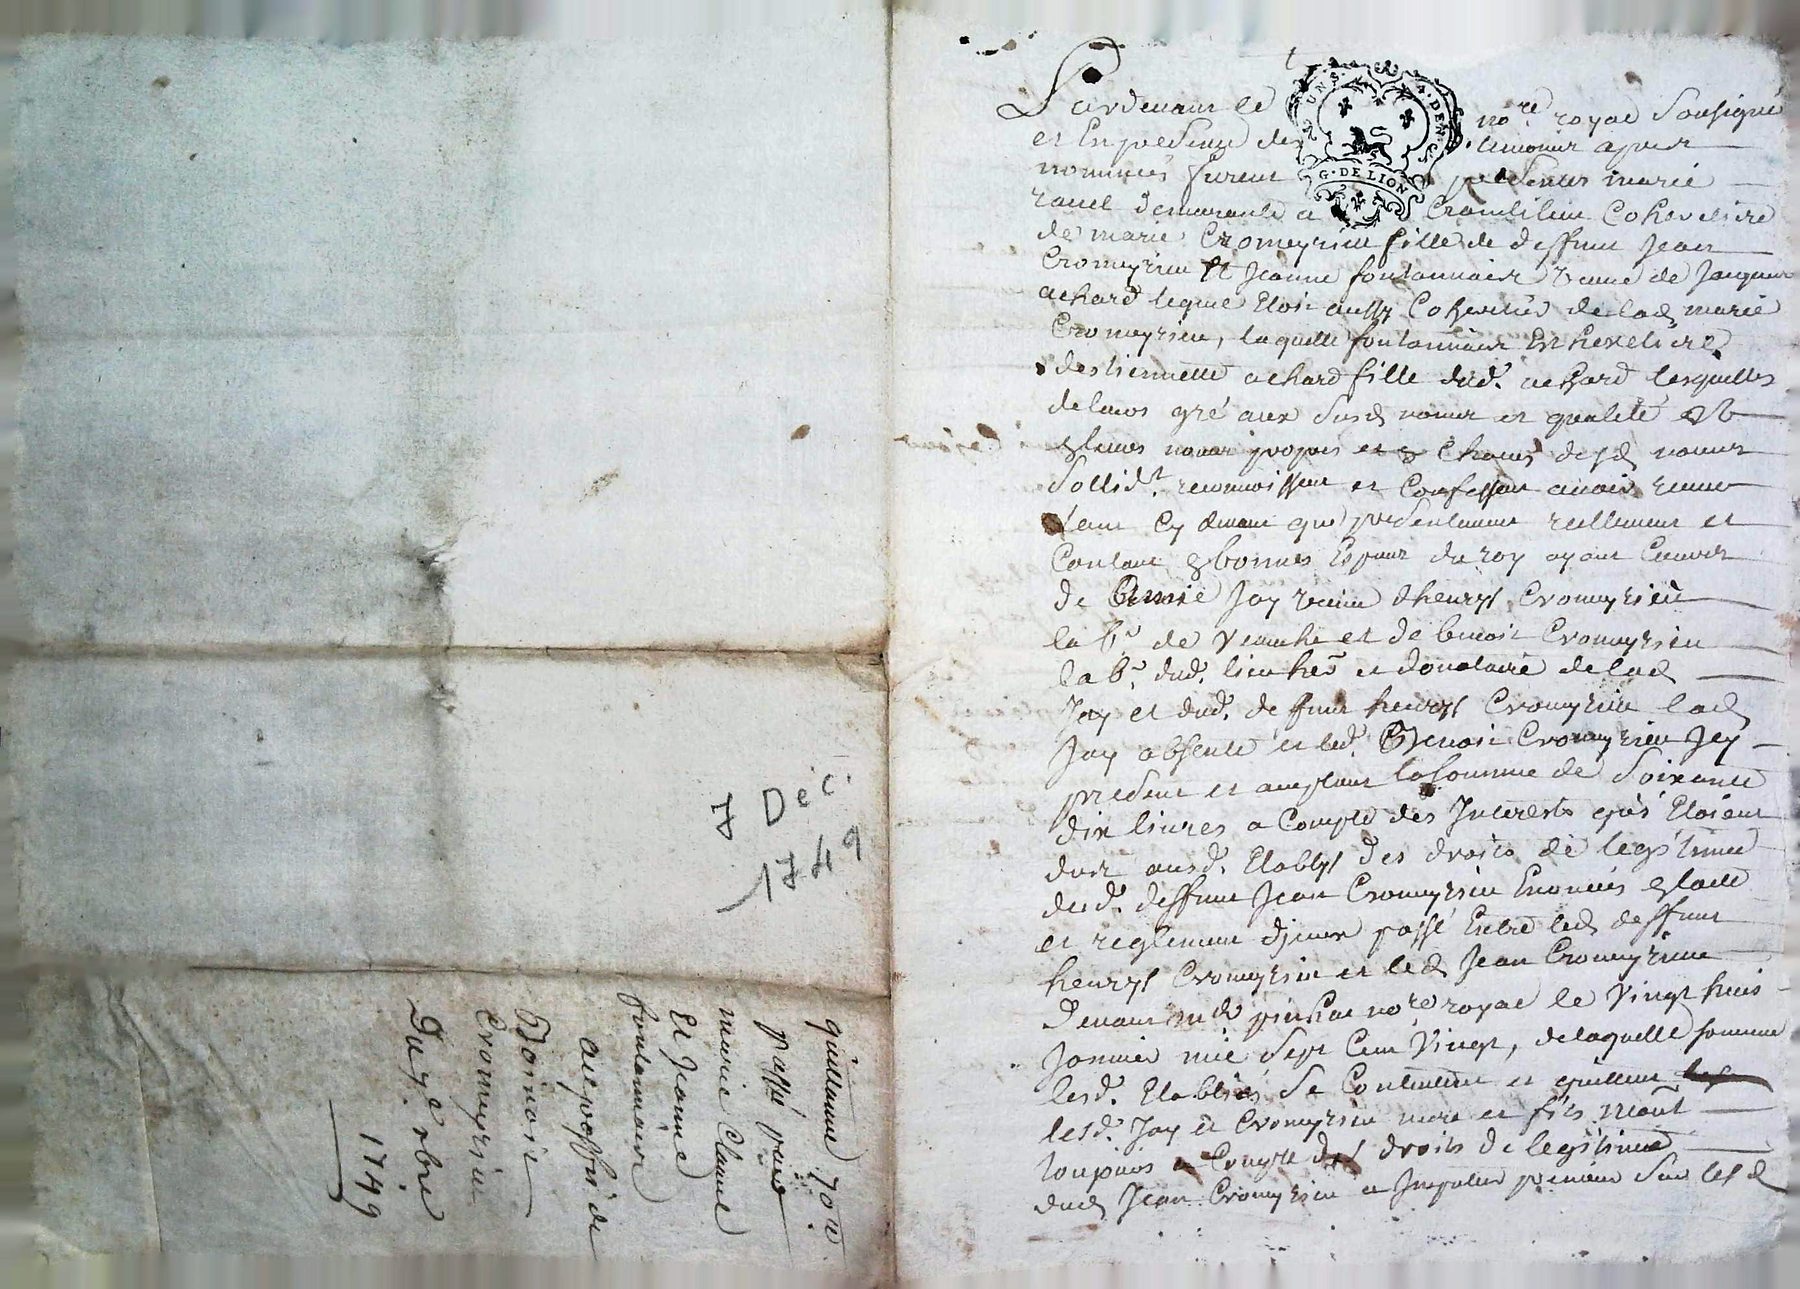 7 Dec.
1749
quittance 70 #
passé par
marie Claude
Et Jeanne
fontanniere
au proffit de
Benoist
Cromeyrieu
Du 7e xbre
1749
Pardevant le nore royal Soussigné
et En presence des temoins apres
nommés furent presentes marie
demeurante a Coheretiere
de marie Cromeyrieu fille de deffunt Jean
Cromeyrieu Et Jeanne fontanniere veuve de Jacques
achard lequel Etoit aussy Coheritier de lad marie
Cromeyrieu, laquelle fontanniere Est heretiere
destiennette achard fille dud. achard lesquelles
de leurs gré aux susd noms et qualité
leurs noms propres et chacun desd noms
Sollidt. reconnoissent et Confessent avoir receu
tant Cy devant que presentement reellement et
Contant bonnes Especes du roy ayant Cours
de Jay veuve dhenrys Cromeyrieu
la br de veauche et de benoit Cromeyrieu
la br. dud. lieu her et donataire de lad
Jay et dud. deffunt henrys Cromeyrieu lad
Jay absente et led. Benoit Cromeyrieu Icy
present et acceptant la somme de Soixante
dix livres a Compte des Interests quis Etoient
dus ausd. Etablys des droits de legitime
dud. deffunt Jean Cromeyrieu Enoncés
et reglement passé Entre led deffunt
henrys Cromeyrieu et led Jean Cromeyrieu
devant me nore royal le vingt huit
Janvier mil Sept Cent vingt, de laquelle somme
lesd. Etablies Se Contentent et quittent
lesd. Jay et Cromeyrieu mere et fils
toujours a Compte des droits de legitime
dud Jean Cromeyrieu a Imputer premier Sur lesd
G. DE LION